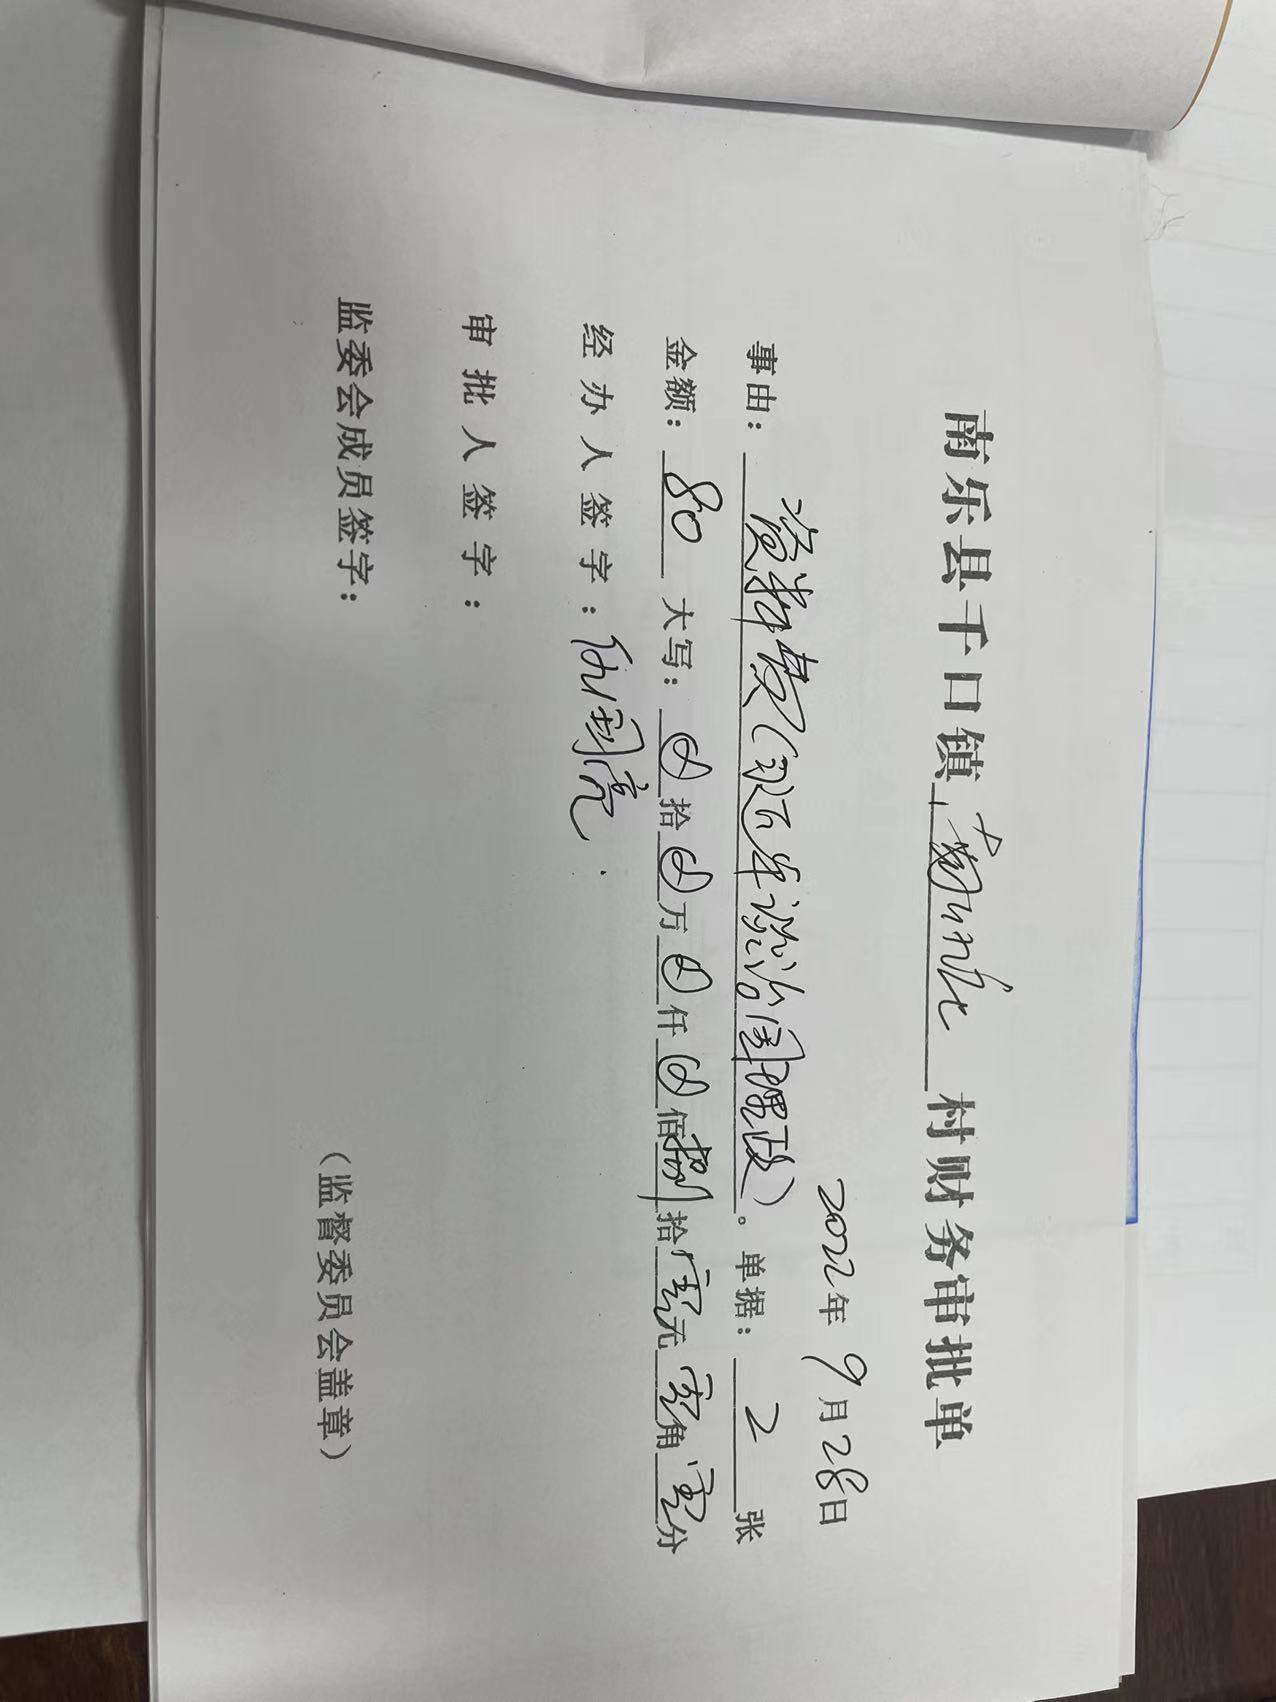 南乐县千口镇 村财务审批单
2022年9月28日
事由：资料费（习近平谈治国理政）。单据：2张
金额：80 大写：⊗拾⊗万⊗仟⊗佰捌拾零元零角零分
经办人签字：
审批人签字：
监委会成员签字：
（监督委员会盖章）